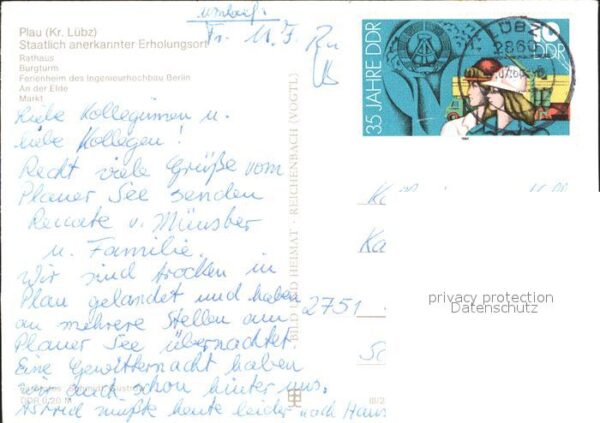 Plau (Kr. Lübz)
Staatlich anerkannter Erholungsort
Rathaus
Burgturm
Ferienheim des Ingenieurhochbau Berlin
An der Elde
Markt
Umlauf:
Liebe Kolleginnen u.
liebe Kollegen!
Recht viele Grüße vom
Plauer See senden
Renate v. Münster
u. Familie.
Wir sind trocken in
Plau gelandet und haben
an mehrere Stellen am
Plauer See übernachtet
Eine Gewitternacht haben
wir auch schon hinter uns.
Astrid mußte heute leider nach Haus
DDR 0,20 M
BILD UND HEIMAT · REICHENBACH (VOGTL)
35 JAHRE DDR
DDR
LÜBZ
2860
2751
privacy protection
Datenschutz